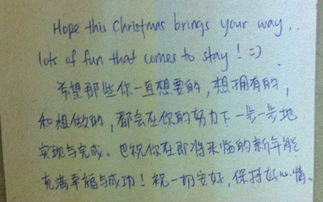 Hope this Christmas brings your way..
lots of fun that comes to stay! =)
希望那些你一直想要的，想拥有的，
和想做的，都会在你的努力下一步一步地
实现与完成。也祝你在即将来临的新年能
充满幸福与成功！祝一切安好，保持好心情。